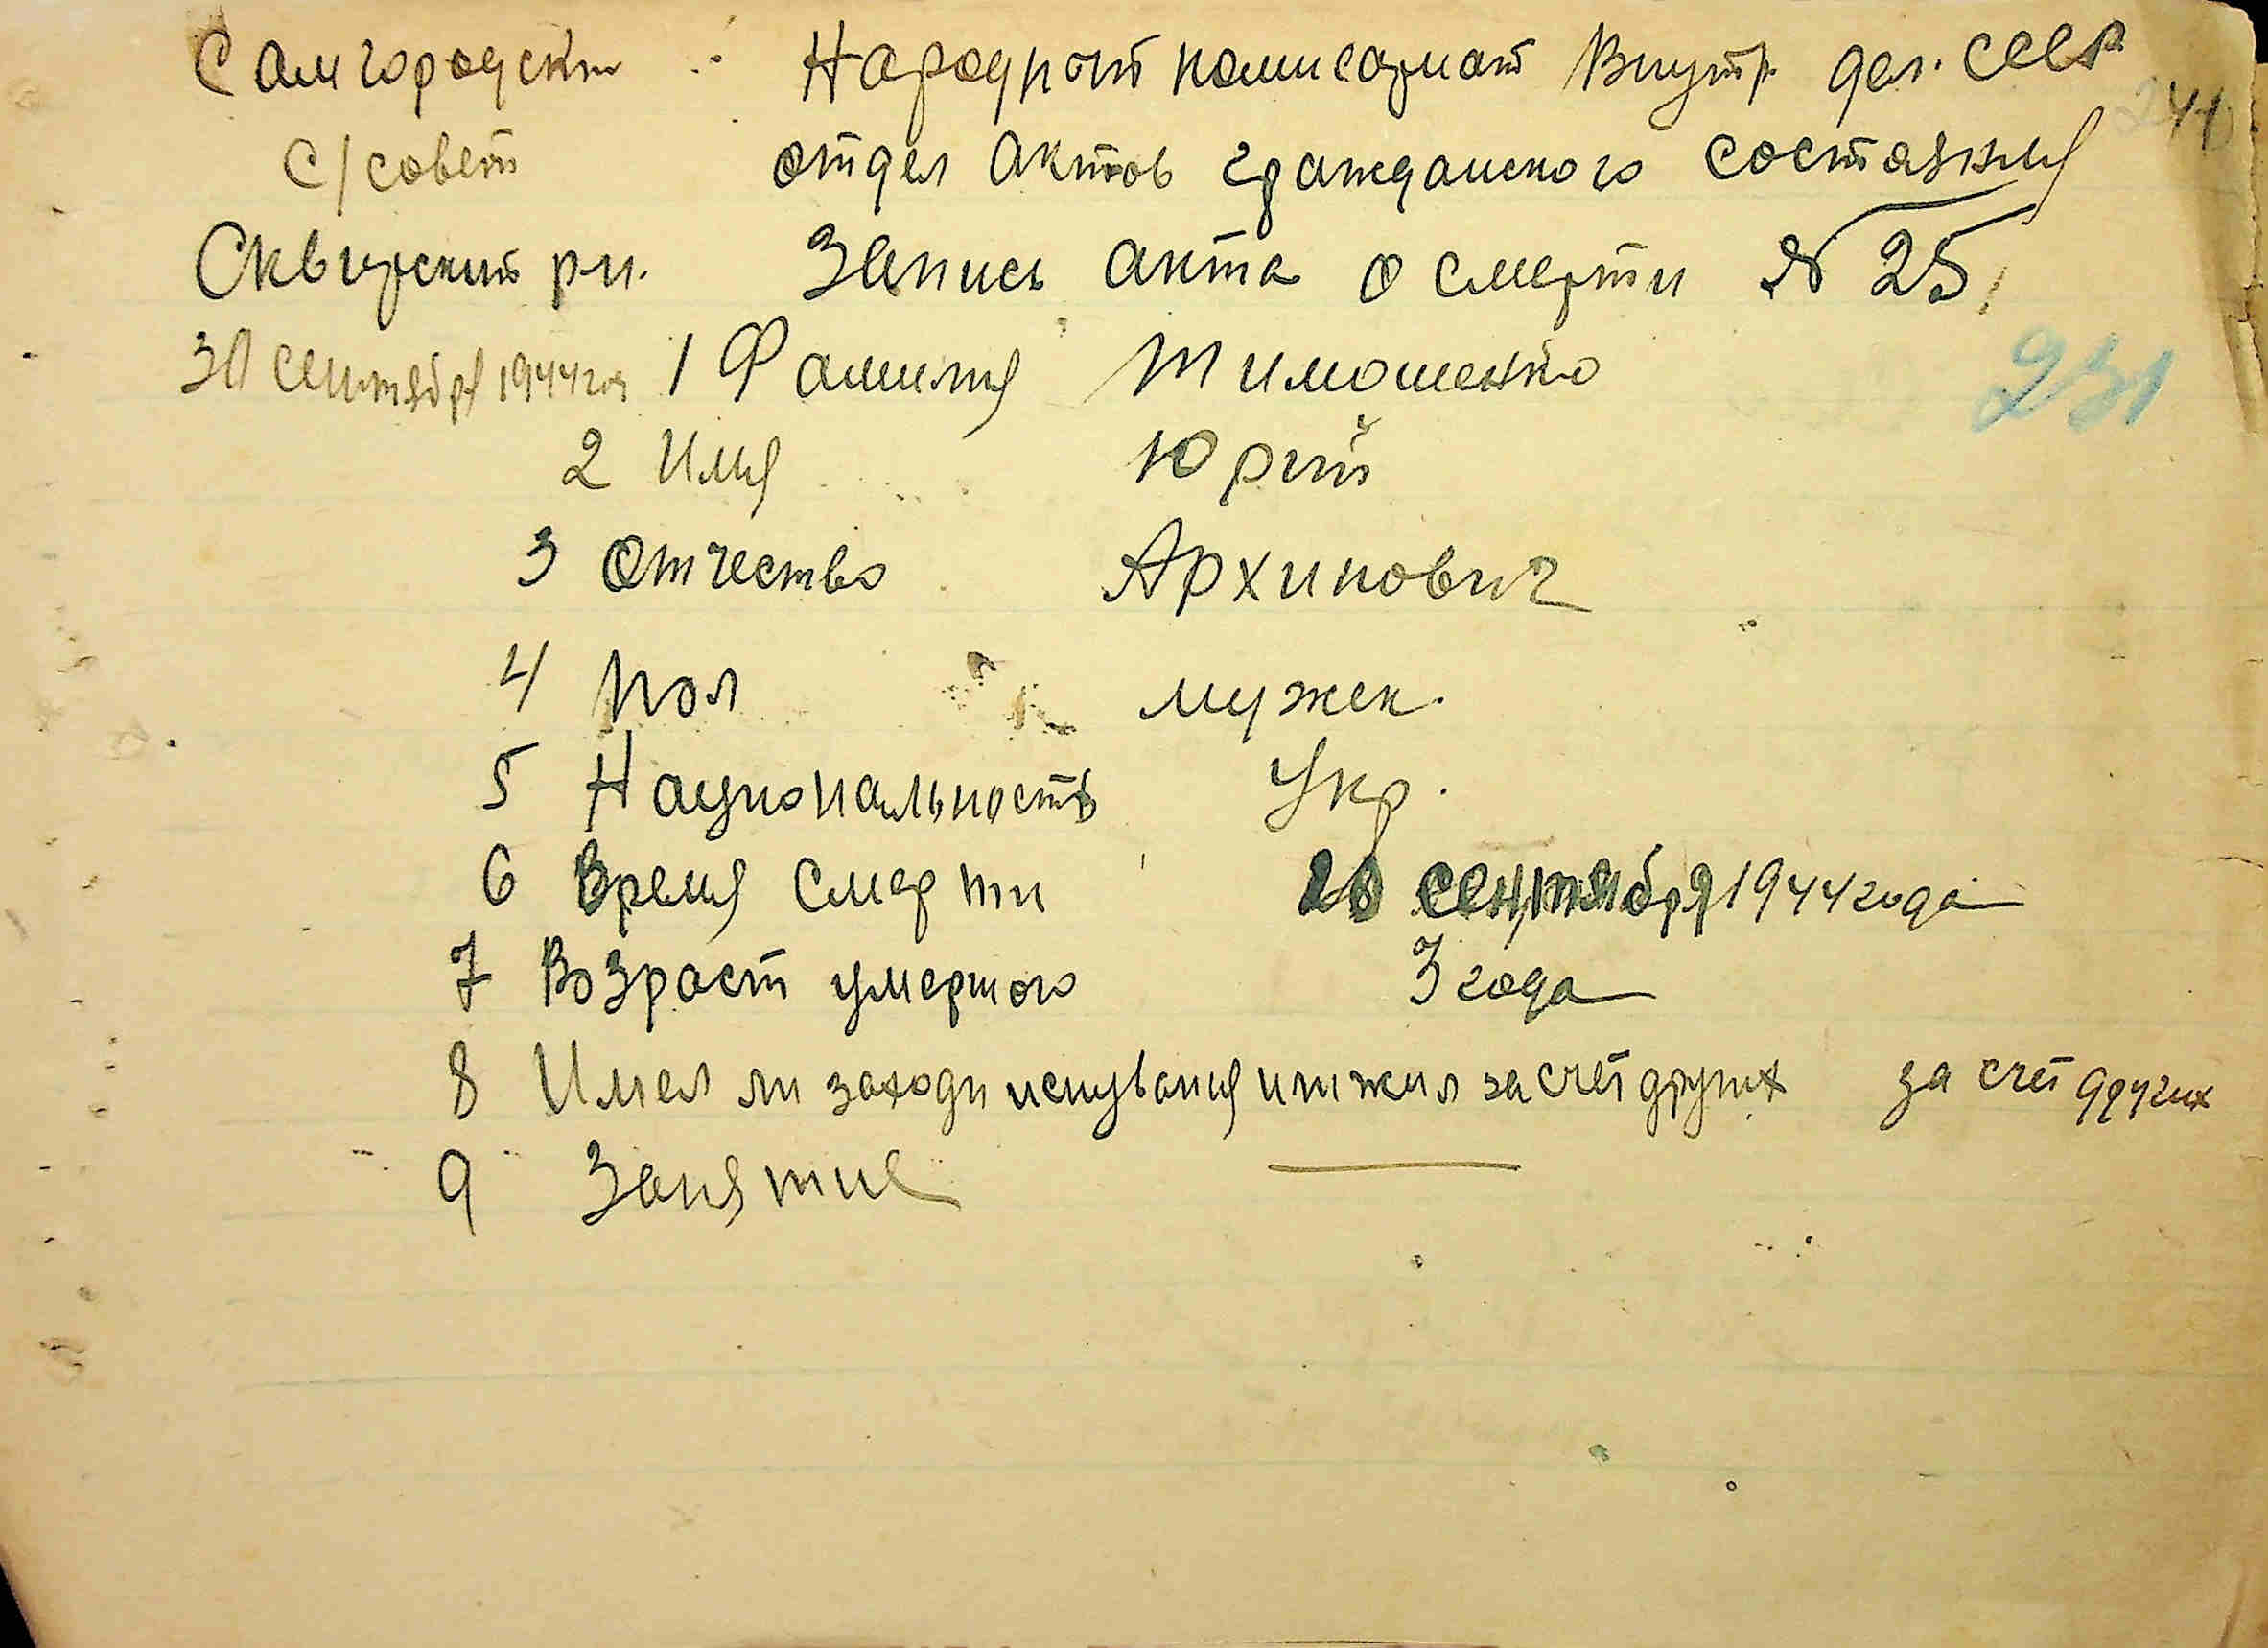 Самгородски Народный комисариат Внутр. дел. СССР
с/совет отдел актов гражданского состаяния
Сквирский р-н. Запись акта о смерти № 25
30 сентября 1944 год 1 Фамилия Тимошенко
231
2 Имя Юрий
3 Отчество Архипович
4 Пол мужск.
5 Национальность Укр.
6 Время смерти сентября 1944 года
7 Возраст умершого 3 года
8 Имел ли заходи иснування или жил за счёт других за счёт других
9 Занятие —